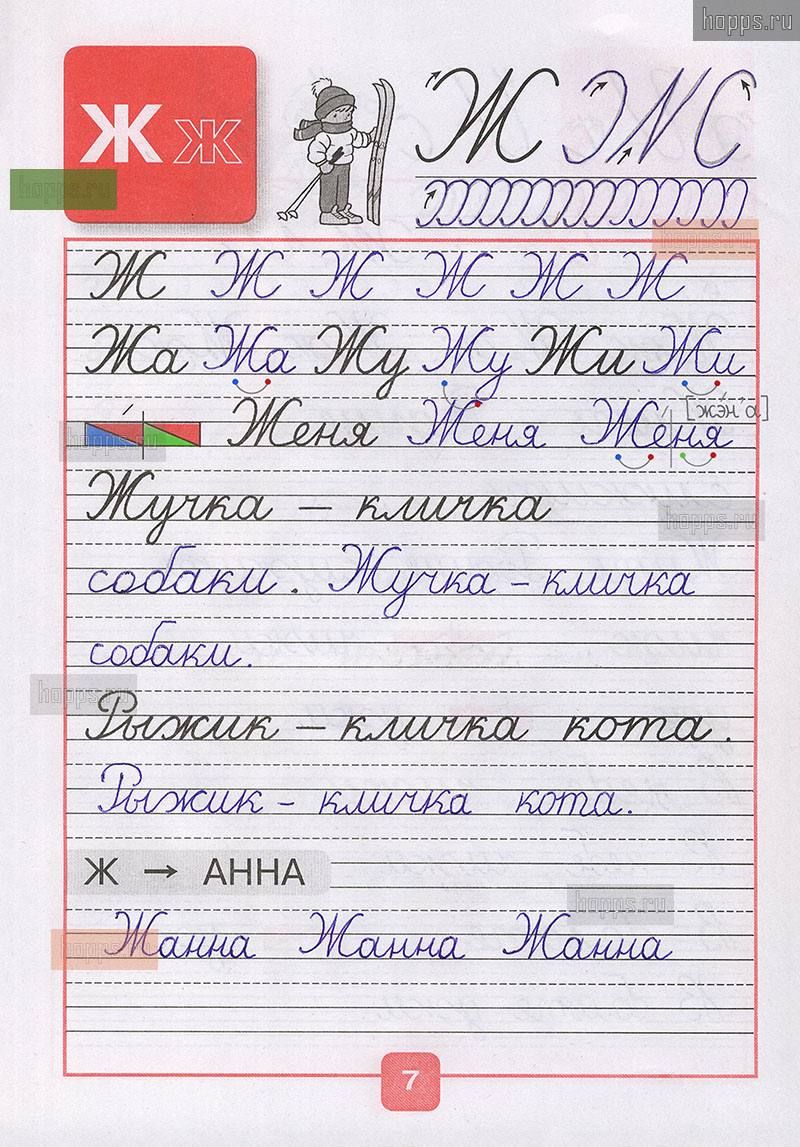 hopps.ru
Ж ж
Ж
hopps.ru
hopps.ru
Ж Ж Ж Ж Ж Ж
Жа Жа Жу Жу Жи Жи
[жэн'а]
Женя Женя Женя
hopps.ru
Жучка – кличка
hopps.ru
собаки. Жучка – кличка
собаки.
hopps.ru
Рыжик – кличка кота.
Рыжик – кличка кота.
Ж → АННА
hopps.ru
Жанна Жанна Жанна
hopps.ru
7